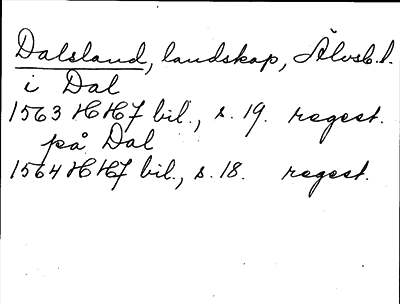 Dalsland, landskap, Älvsb.l.
i Dal
1563 HH7 bil., s. 19. regest.
på Dal
1564 HH7 bil., s. 18. regest.